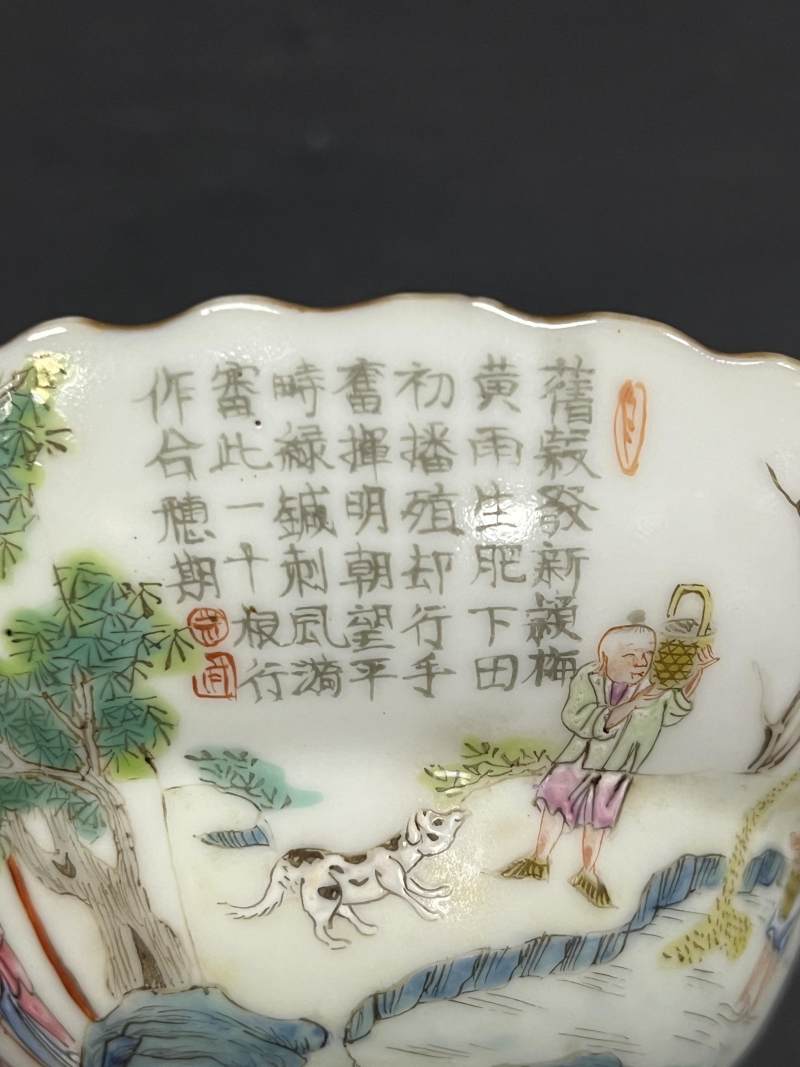 舊穀發新穎梅
黄雨生肥下田
初播殖却行手
奮揮明朝望平
時緑鍼刺風漪
審此一十根行
作合穗期